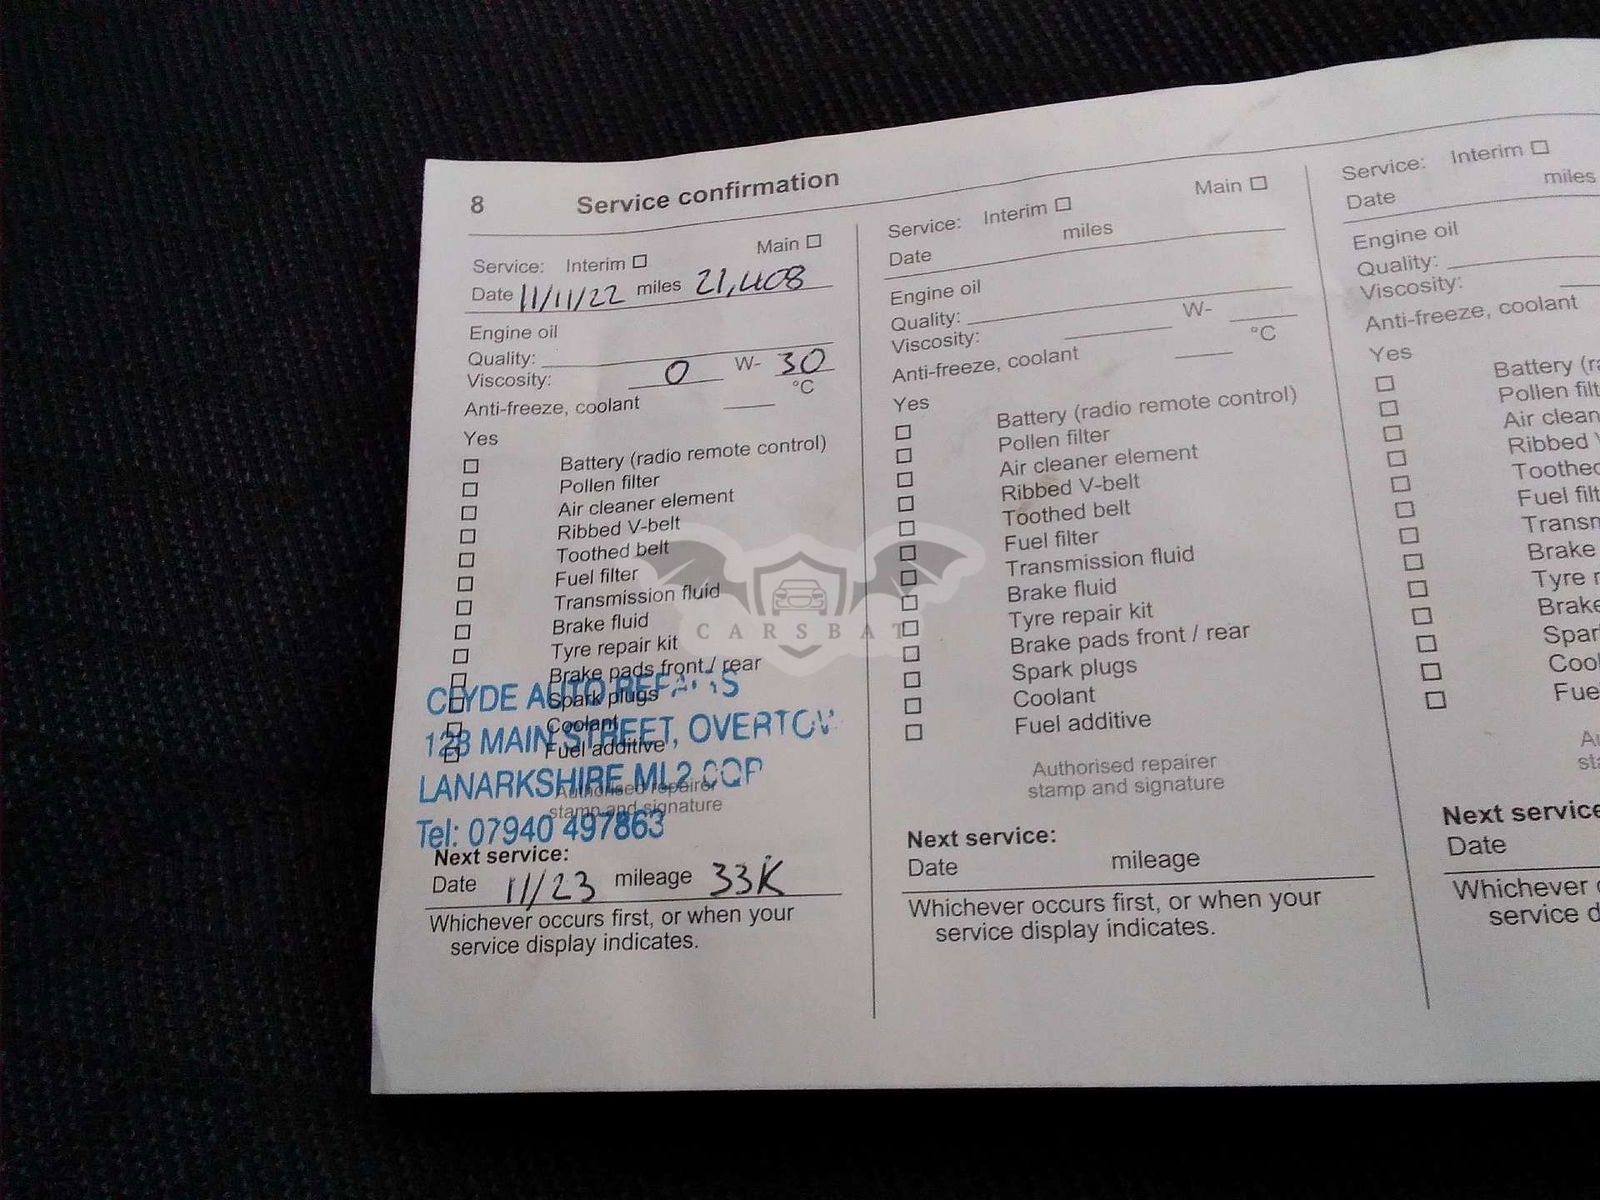 8 Service confirmation
Main
Service: Interim
Date 11/11/22 miles 21,408
Engine oil
Quality:
Viscosity: 0 W- 30
Anti-freeze, coolant °C
Yes
Battery (radio remote control)
Pollen filter
Air cleaner element
Ribbed V-belt
Toothed belt
Fuel filter
Transmission fluid
Brake fluid
Tyre repair kit
Brake pads front / rear
Spark plugs
Coolant
Fuel additive
CLYDE AUTO REPAIRS
123 MAIN STREET, OVERTOWN
LANARKSHIRE ML2 0QP
Tel: 07940 497863
Authorised repairer
stamp and signature
Next service:
Date 11/23 mileage 33K
Whichever occurs first, or when your
service display indicates.
Service: Interim Main
Date miles
Engine oil
Quality:
Viscosity: W-
Anti-freeze, coolant °C
Yes
Battery (radio remote control)
Pollen filter
Air cleaner element
Ribbed V-belt
Toothed belt
Fuel filter
Transmission fluid
Brake fluid
Tyre repair kit
Brake pads front / rear
Spark plugs
Coolant
Fuel additive
Authorised repairer
stamp and signature
Next service:
Date mileage
Whichever occurs first, or when your
service display indicates.
Service: Interim
Date miles
Engine oil
Quality:
Viscosity:
Anti-freeze, coolant
Yes
Battery (ra
Pollen filt
Air clean
Ribbed V
Toothed
Fuel filt
Transm
Brake
Tyre r
Brake
Spar
Coo
Fue
Au
sta
Next service
Date
Whichever
service d
CARSBAT